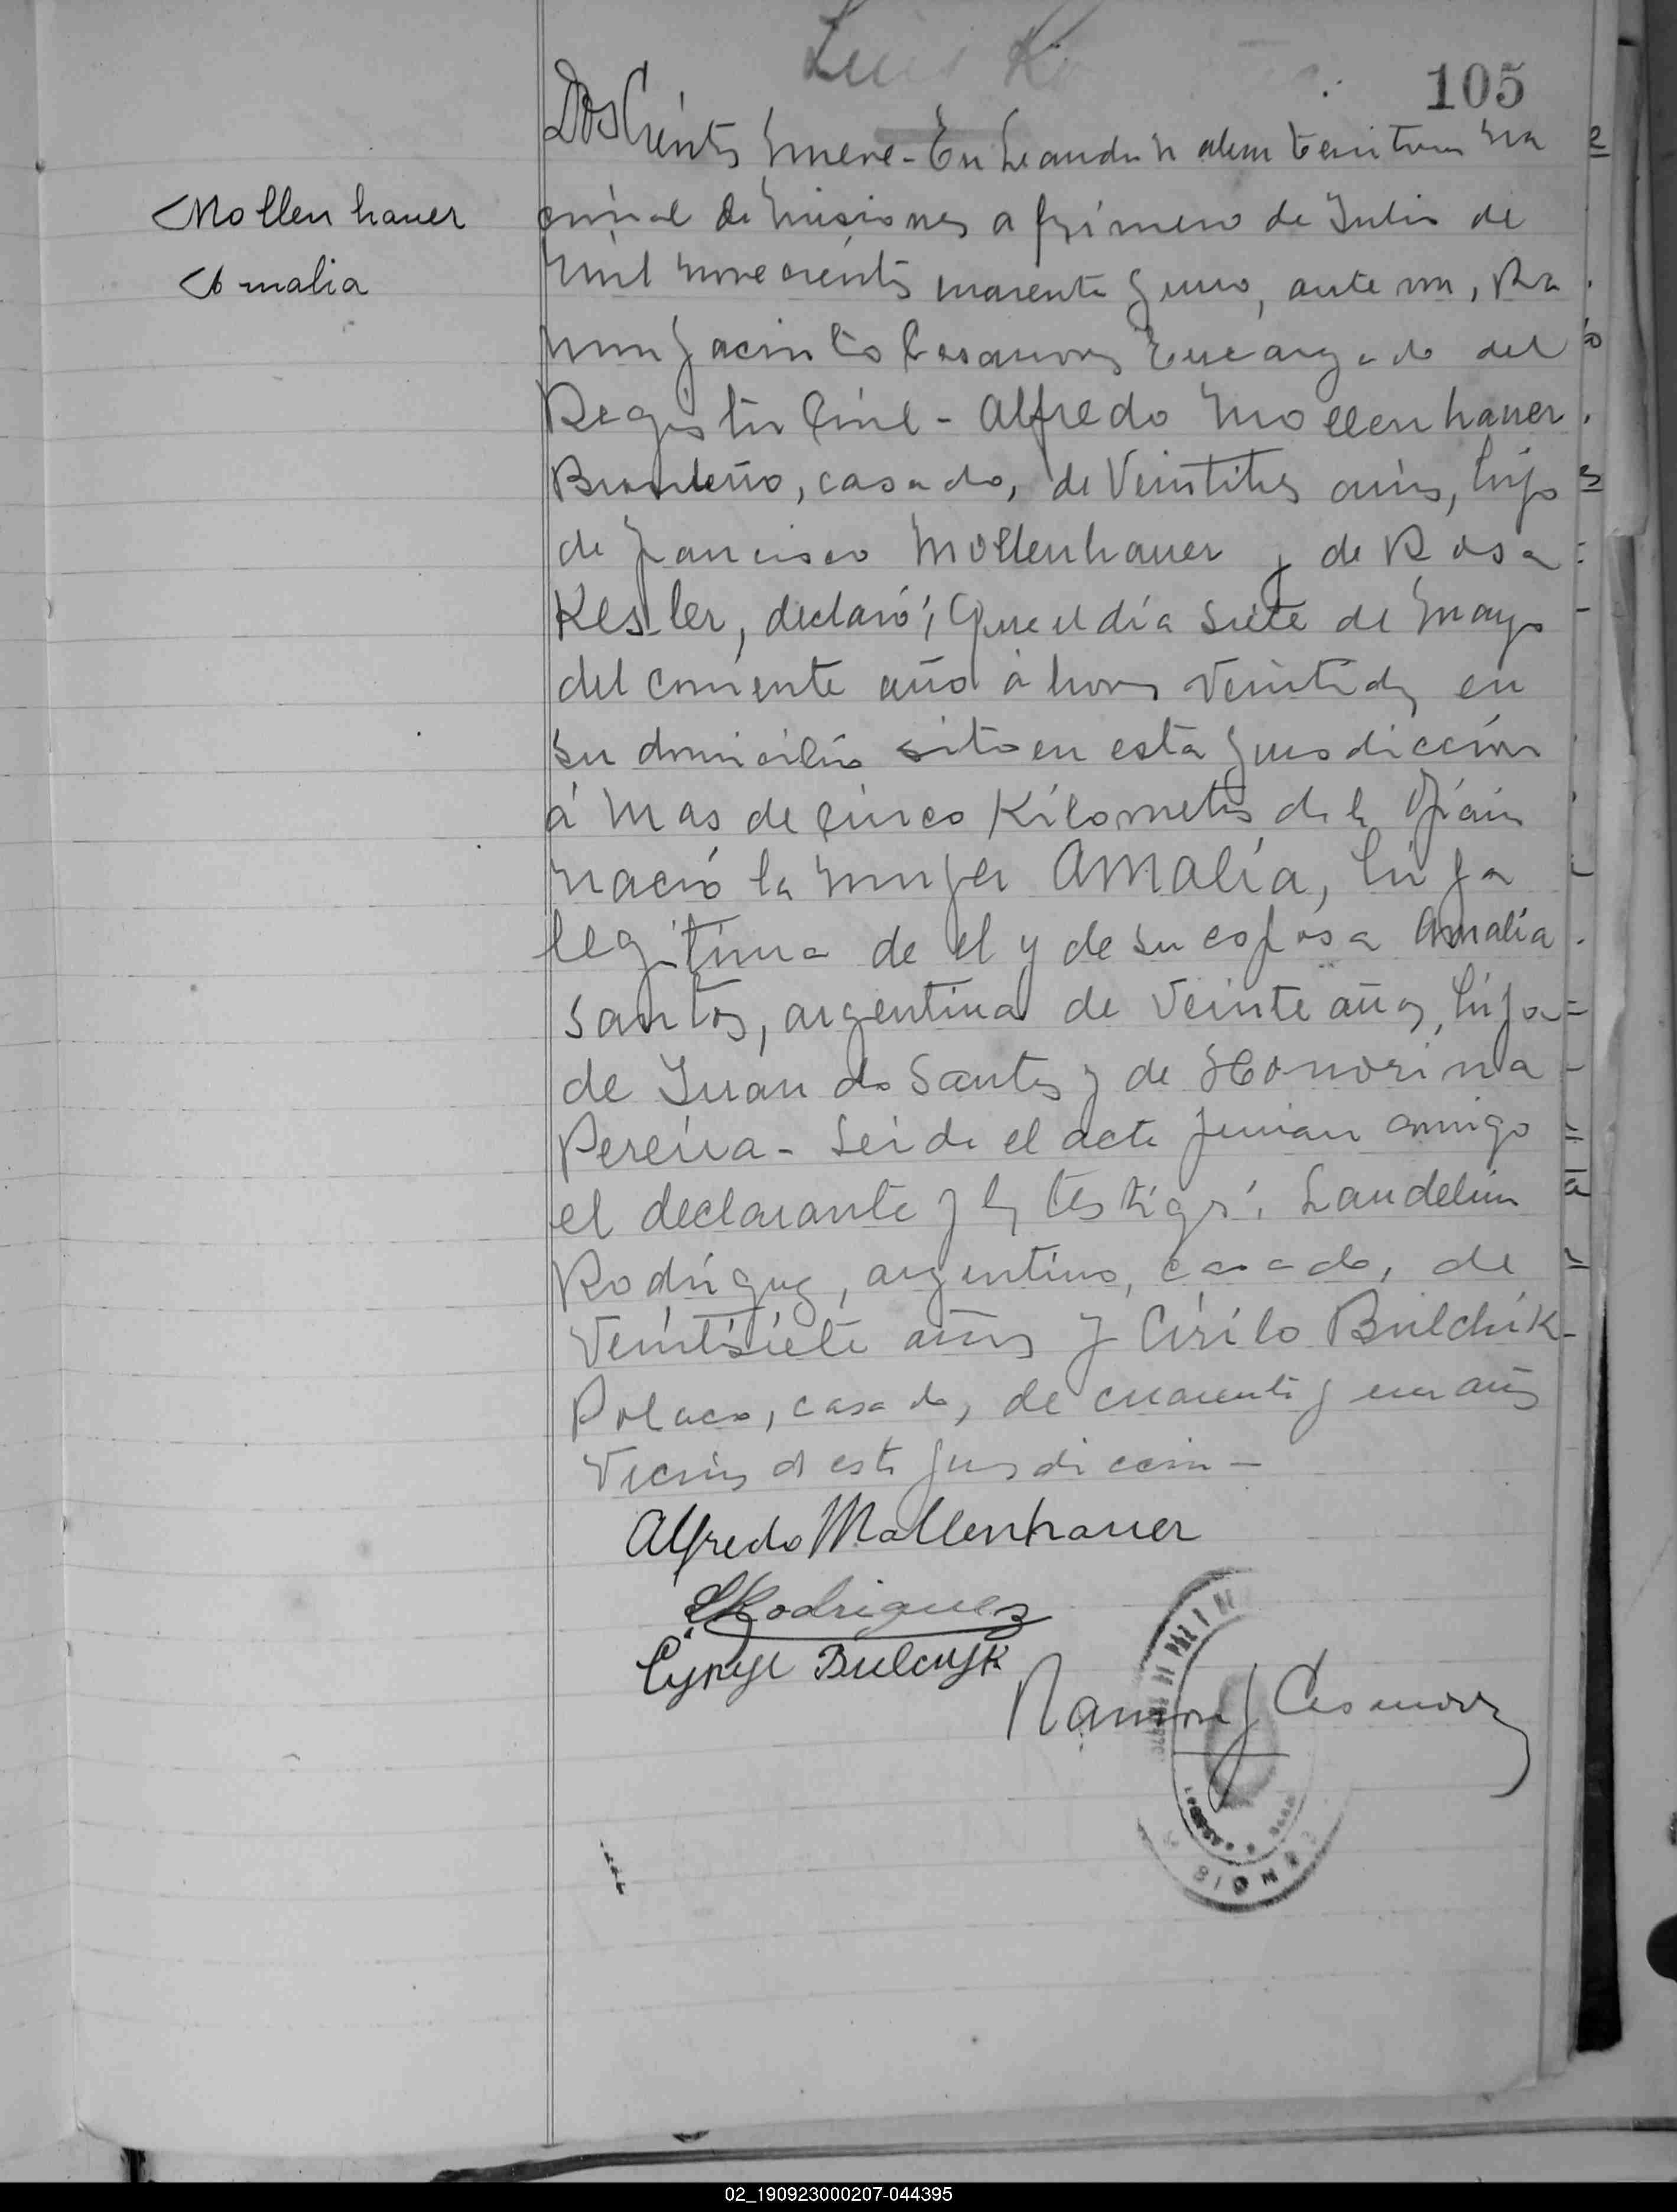 105
Mollenhauer
Amalia
Doscientos nueve - En Leandro N Alem Territorio Na
cional de Misiones a primero de Julio de
mil novecientos cuarenta y uno, ante mi, Ra
mon Jacinto Casanova Encargado del
Registro Civil - Alfredo Mollenhauer
Brasileño, casado, de Veintitres años, hijo
de Francisco Mollenhauer y de Rosa
Kesler, declaró; Que el día siete de Mayo
del corriente año á horas veintidos en
su domicilio sito en esta jurisdicción
á mas de cinco Kilometros de la Oficina
nació la mujer AMALIA, hija
legitima de el y de su esposa Amalia
Santos, argentina de veinte años, hija
de Juan do Santos y de Honorina
Pereira - Leida el acta firman conmigo
el declarante y los testigos: Laudelino
Rodriguez, argentino, casado, de
veintisiete años y Cirilo Bulchik
Polaco, casado, de cuarenta y un años
Vecinos de esta jurisdiccion -
Alfredo Mollenhauer
LRodriguez
Ramon J Casanova
02_190923000207-044395